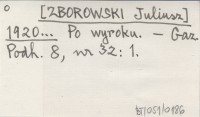 [ZBOROWSKI Juliusz]
1920... Po wyroku. – Gaz.
Podh. 8, nr 32: 1.